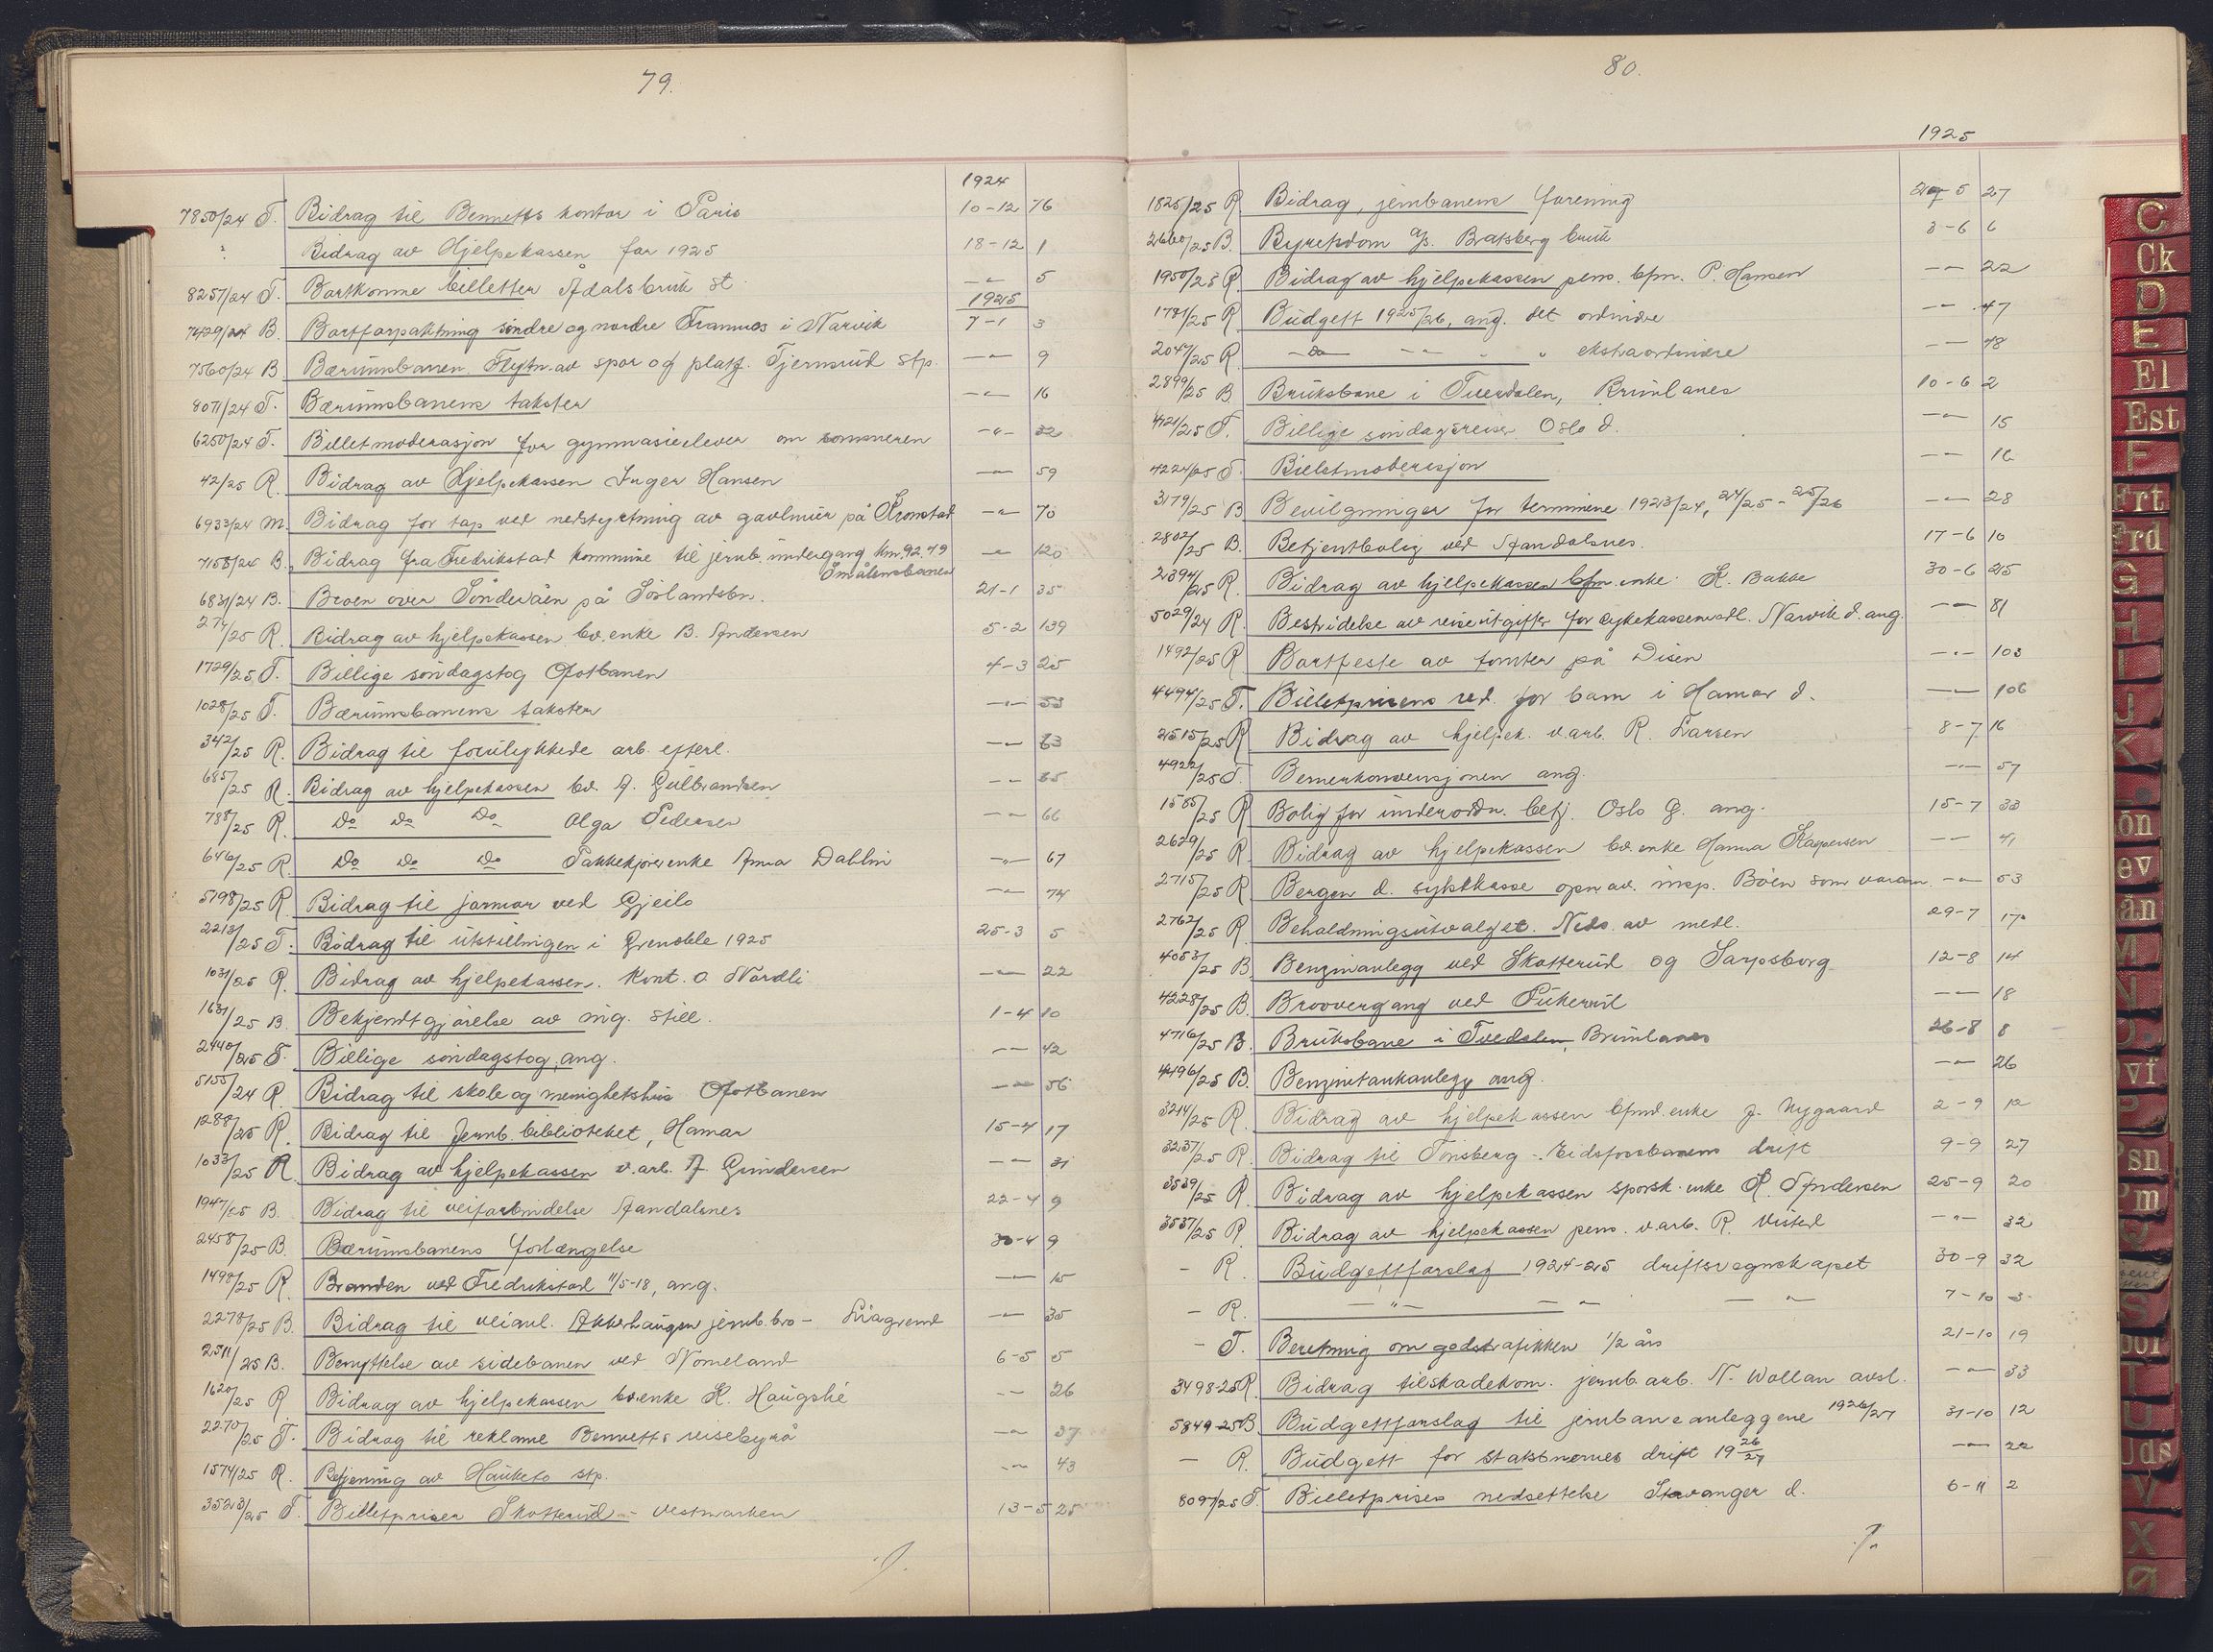 79.
1924
7850/24 T. Bidrag til Bennetts kontor i Paris 10-12 76
? Bidrag av Hjelpekassen for 1925 18-12 1
8257/24 T. Bortkomne billetter Ådalsbruk st. -"- 5
1925
7429/24 B. Bortforpaktning søndre og nordre Framnes i Narvik 7-1 3
7560/24 B Bærumsbanen. Flytn. av spor og platf. Tjernsrud stp. -"- 9
8071/24 T. Bærumsbanens takster -"- 16
6250/24 T. Billetmoderasjon for gymnasieelever om sommeren -"- 32
42/25 R. Bidrag av Hjelpekassen Inger Hansen -"- 59
6933/24 M. Bidrag for tap ved nedstyrtning av gavlmur på Kronstad -"- 70
7158/24 B. Bidrag fra Fredrikstad kommune til jernb. undergang km. 92.49 -"- 120
Smålensbanen
6831/24 B. Broen over Sønderåen på Sørlandsbn. 21-1 35
274/25 R. Bidrag av hjelpekassen bv. enke B. Andersen 5-2 139
1729/25 T. Billige søndagstog Ofotbanen 4-3 25
1028/25 T. Bærumsbanens takster -"- 53
342/25 R. Bidrag til forulykkede arb. efterl. -"- 63
685/25 R. Bidrag av hjelpekassen bv. A. Gulbrandsen -"- 65
788/25 R. Do Do Do Olga Pedersen -"- 66
646/25 R. Do Do Do Pakkekjørerenke Anna Dahlin -"- 67
5198/25 R. Bidrag til jarmar ved Gjeilo -"- 74
2218/25 T. Bidrag til utstillingen i Grenoble 1925 25-3 5
1031/25 R. Bidrag av hjelpekassen. Kont. O. Nordli -"- 22
1631/25 B. Bekjendtgjørelse av ing. still. 1-4 10
2440/25 T. Billige søndagstog, ang. -"- 42
5155/24 R. Bidrag til skole og menighetshus Ofotbanen -"- 56
1288/25 R. Bidrag til Jernb. biblioteket, Hamar 15-4 17
1033/25 R Bidrag av hjelpekassen v. arb. A. Gundersen -"- 31
1947/25 B. Bidrag til veiforbindelse Åndalsnes 22-4 9
2458/25 B. Bærumsbanens forlængelse 30-4 9
1498/25 R. Branden ved Fredrikstad 11/5-18, ang. -"- 15
2278/25 B. Bidrag til veianl. Akkerhaugen jernb. bro - Liagrend -"- 35
2511/25 B. Benyttelse av sidebanen ved Nomeland 6-5 5
1620/25 R Bidrag av hjelpekassen bv. enke K. Haugslie -"- 26
2270/25 T. Bidrag til reklame Bennetts reisebyrå -"- 37
1574/25 R. Betjening av Hauketo stp. -"- 43
3523/25 T. Billetpriser Skotterud - Vestmarken 13-5 25
80.
1925
1825/25 R Bidrag, jernbanens forening 27-5 27
2660/25 B. Byretsdom A/S. Bratsberg bruk 3-6 6
1950/25 R. Bidrag av hjelpekassen pens. bfm. P. Hansen -"- 22
1781/25 R Budgett 1925/26, ang. det ordinære -"- 47
2047/25 R -Do- -"- " " ekstraordinære -"- 48
2899/25 B Bruksbane i Tveidalen, Brunlanes 10-6 2
4121/25 T. Billige søndagsreiser Oslo d. -"- 15
4224/25 T. Billetmoderasjon -"- 16
3179/25 B Bevilgninger for terminene 1923/24, 24/25 - 25/26 -"- 28
2802/25 B. Betjentbolig ved Åndalsnes. 17-6 10
2394/25 R. Bidrag av hjelpekassen bfm. enke K. Bakke 30-6 25
5029/24 R. Bestridelse av reiseutgifter for sykekassemedl. Narvik d. ang. -"- 81
1492/25 R Bortfeste av tomter på Disen -"- 103
4494/25 T. Billetprisens red. for barn i Hamar d. -"- 106
2515/25 R Bidrag av hjelpek. v. arb. R. Larsen 8-7 16
4922/25 T. Bernerkonvensjonen ang. -"- 57
1585/25 R Bolig for underordn. betj. Oslo Ø. ang. 15-7 33
2629/25 R Bidrag av hjelpekassen bv. enke Hanna Kaspersen -"- 41
2715/25 R Bergen d. sykekasse opn. av. insp. Bøen som varam. -"- 53
2762/25 R Beholdningsutvalget. Neds. av medl. 29-7 17
4053/25 B Benzinanlegg ved Skotterud og Sarpsborg 12-8 14
4228/25 B. Broovergang ved Pukerud -"- 18
4716/25 B. Bruksbane i Tvedalen, Brunlanes 26-8 8
4496/25 B. Benzintankanlegg ang. -"- 26
3214/25 R. Bidrag av hjelpekassen bfmd. enke J. Nygaard 2-9 12
3237/25 R. Bidrag til Tønsberg - Eidsfossbanens drift 9-9 27
3539/25 R. Bidrag av hjelpekassen sporsk. enke K. Andersen 25-9 20
3537/25 R. Bidrag av hjelpekassen pens. v. arb. R. Visted -"- 32
- R. Budgettforslag 1924-25 driftsregnskapet 30-9 32
- R. -"- -"- -"- 7-10 3
- T. Beretning om godstrafikken 1/2 års 21-10 19
3498-25 R. Bidrag tilskadekom. jernb. arb. N. Wollan avsl. -"- 33
5849-25 B. Budgettforslag til jernbaneanleggene 1926/27 31-10 12
- R. Budgett for statsbanernes drift 19 26/27 -"- 22
8097/25 T. Billetprises nedsettelse Stavanger d. 6-11 2
C
Ck
D
E
El
Est
F
Frt
Frd
G
H
I
J
K
M
N
P
Psn
S
T
U
Uds
V
X
Ø